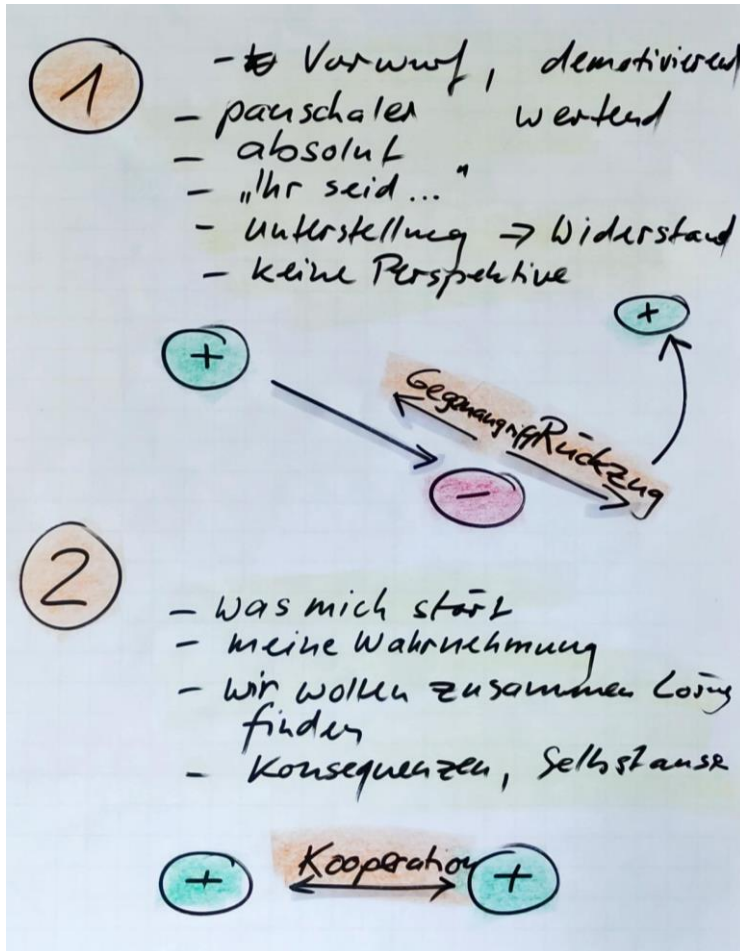 1
- Vorwurf, demotivierend
- pauschaler wertend
- absolut
- „Ihr seid..."
- Unterstellung → Widerstand
- keine Perspektive
+
+
Gegenangriff
Rückzug
-
2
- was mich stört
- meine Wahrnehmung
- wir wollen zusammen Lösung
finden
- Konsequenzen,
Kooperation
+ +